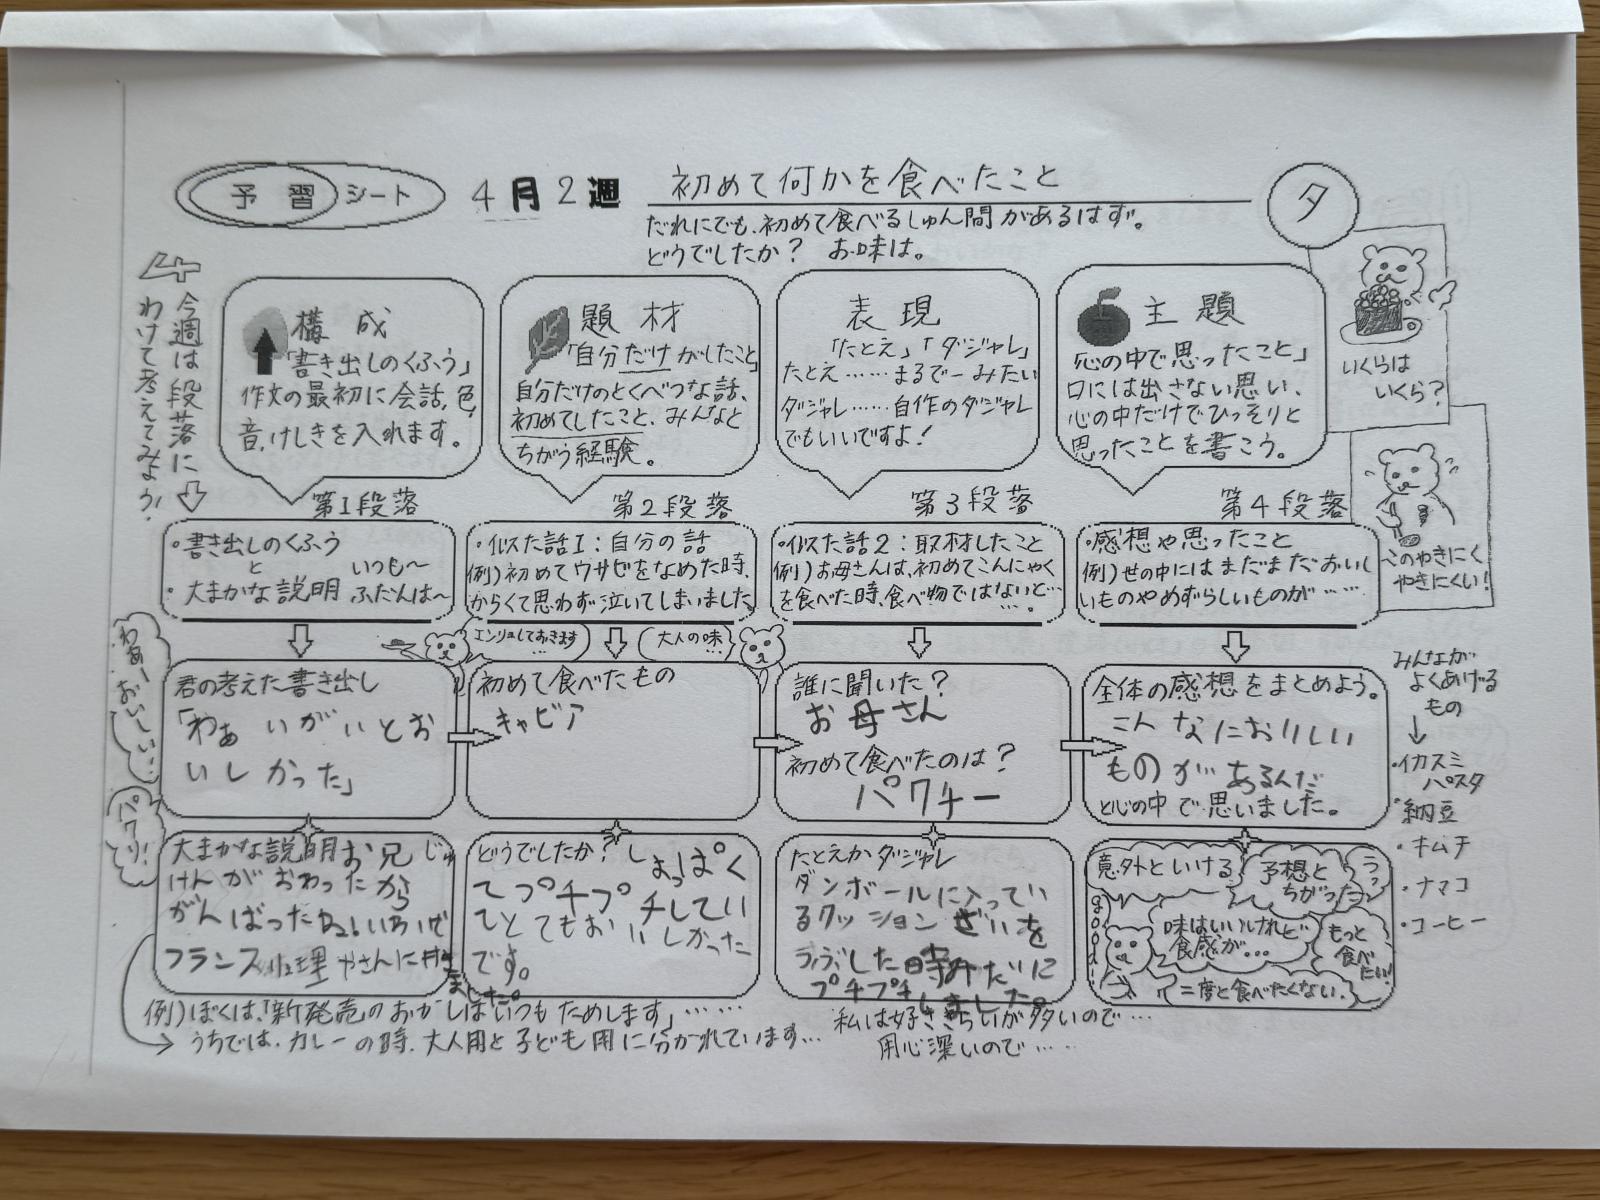 予習シート
4月2週
初めて何かを食べたこと
だれにでも、初めて食べるしゅん間があるはず。
どうでしたか？ お味は。
夕
今週は段落に
わけて考えてみよう！
構成
「書き出しのくふう」
作文の最初に会話、色、
音、けしきを入れます。
題材
「自分だけがしたこと」
自分だけのとくべつな話、
初めてしたこと、みんなと
ちがう経験。
表現
「たとえ」「ダジャレ」
たとえ……まるでーみたい
ダジャレ……自作のダジャレ
でもいいですよ！
主題
「心の中で思ったこと」
口には出さない思い、
心の中だけでひっそりと
思ったことを書こう。
いくらは
いくら？
このやきにく
やきにくい！
第1段落
・書き出しのくふう
と
・大まかな説明
いつも～
ふだんは～
第2段落
・似た話1：自分の話
例）初めてワサビをなめた時、
からくて思わず泣いてしまいました
第3段落
・似た話2：取材したこと
例）お母さんは、初めてこんにゃく
を食べた時、食べ物ではないと…
…。
第4段落
・感想や思ったこと
例）世の中にはまだまだおいし
いものやめずらしいものが……
わぁーおいしい…
パクリ！
エンリョしておきます…
大人の味…
君の考えた書き出し
「わぁ いがいとお
いしかった」
初めて食べたもの
キャビア
誰に聞いた？
お母さん
初めて食べたのは？
パクチー
全体の感想をまとめよう。
こんなにおいしい
ものがあるんだ
と心の中で思いました。
みんなが
よくあげる
もの
・イカスミ
パスタ
・納豆
・キムチ
・ナマコ
・コーヒー
大まかな説明 お兄じゅ
けんがおわったから
がんばったね
フランス料理やさんに
ました。
どうでしたか？ しょっぱく
てプチプチしてい
てとてもおいしかった
です。
たとえかダジャレ
ダンボールに入ってい
るクッションざいを
みたいに
プチプチしました。
意外といける
予想と
ちがった
ラッ
good!
味はいいけれど
食感が…
もっと
食べたい！
二度と食べたくない。
例）ぼくは「新発売のおかしはいつもためします」……
うちでは、カレーの時、大人用と子ども用に分かれています…
私は好ききらいが多いので…
用心深いので……